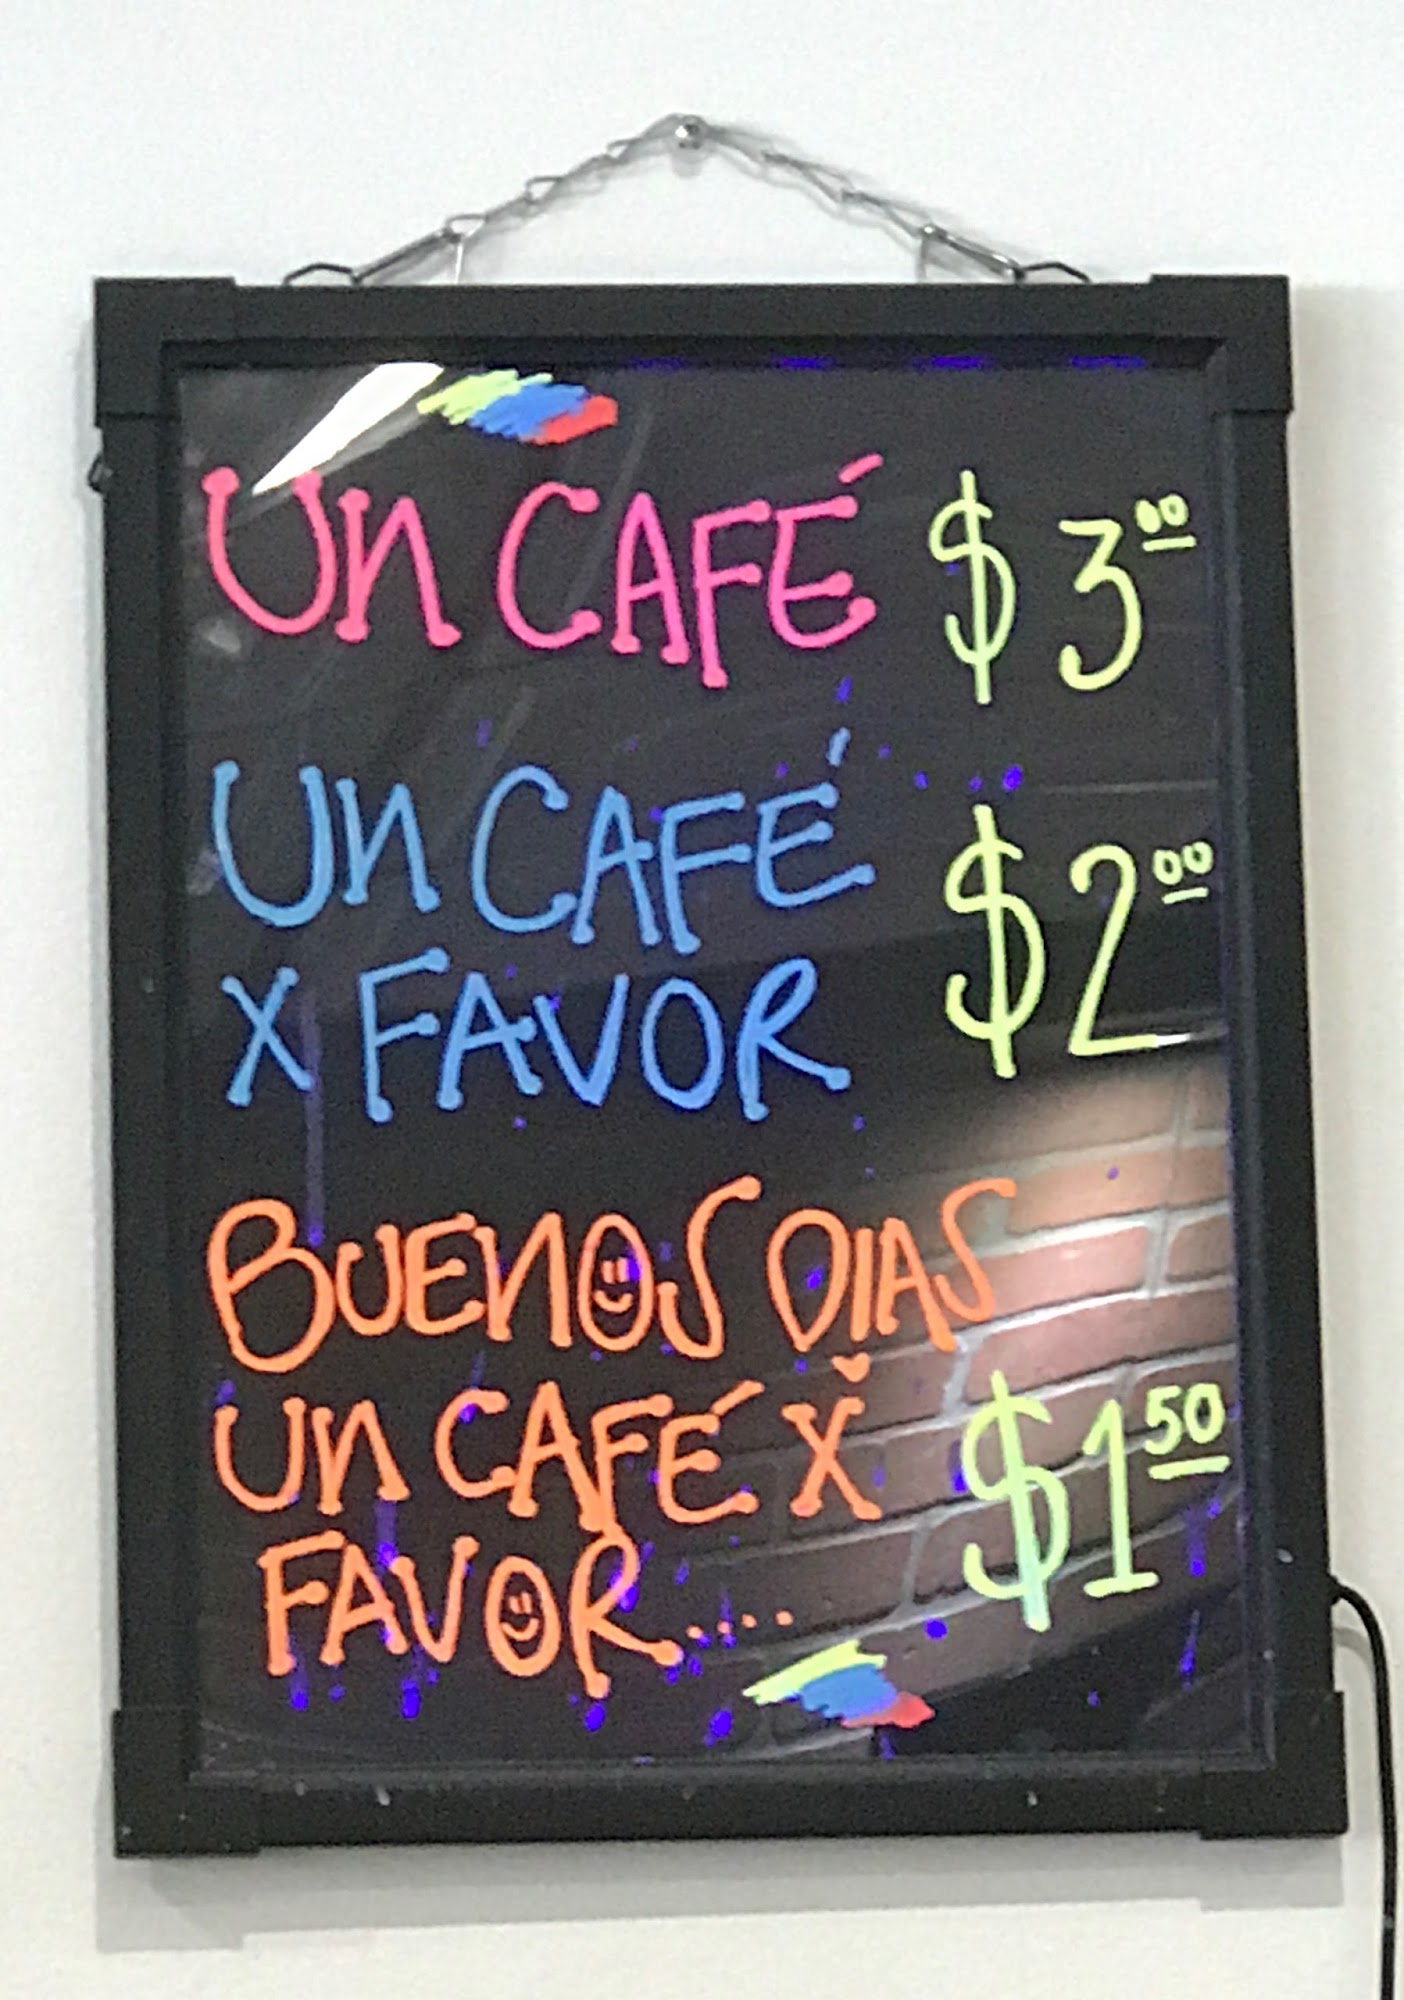 Un CAFÉ $ 3.00
Un CAFÉ $ 2.00
X FAVOR
BUENOS DIAS
Un CAFÉ X $ 1.50
FAVOR....